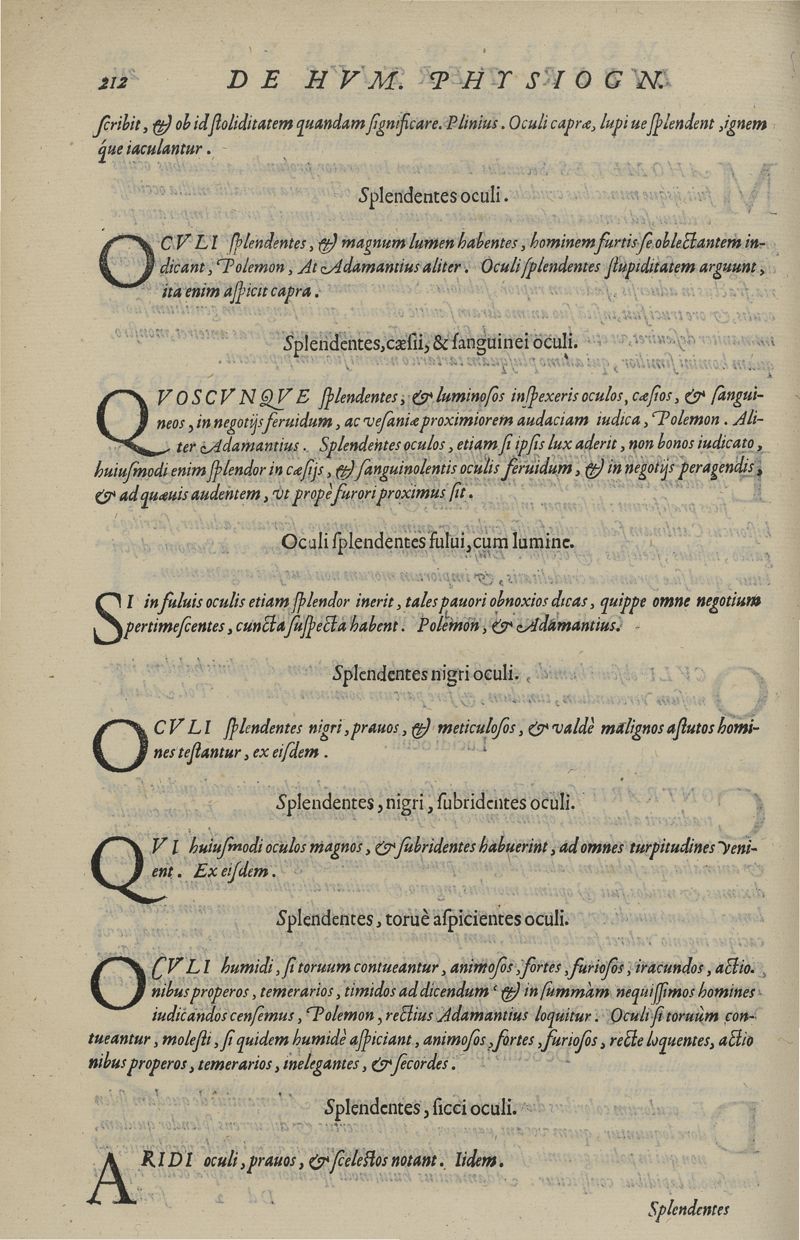 212 DE HVM. PHYSIOGN.
ſcribit, & ob id ſtoliditatem quandam ſignificare. Plinius. Oculi capræ, lupiue ſplendent, ignem
que iaculantur.
Splendentes oculi.
OCVLI ſplendentes, & magnum lumen habentes, hominem furtis ſe oblectantem in-
dicant, Polemon, At Adamantius aliter. Oculi ſplendentes ſtupiditatem arguunt,
ita enim aſpicit capra.
Splendentes, cæſii, & ſanguinei oculi.
QVOSCVNQVE ſplendentes, & luminoſos inſpexeris oculos, cæſios, & ſangui-
neos, in negotijs feruidum, ac veſaniæ proximiorem audaciam iudica, Polemon. Ali-
ter Adamantius. Splendentes oculos, etiam ſi ipſis lux aderit, non bonos iudicato,
huiuſmodi enim ſplendor in cæſijs, & ſanguinolentis oculis feruidum, & in negotijs peragendis,
& ad quæuis audentem, vt propè furori proximus ſit.
Oculi ſplendentes fului, cum lumine.
SI in fuluis oculis etiam ſplendor inerit, tales pauori obnoxios dicas, quippe omne negotium
pertimeſcentes, cuncta ſuſpecta habent. Polemon, & Adamantius.
Splendentes nigri oculi.
OCVLI ſplendentes nigri, prauos, & meticuloſos, & valdè malignos aſtutos homi-
nes teſtantur, ex eiſdem.
Splendentes, nigri, ſubridentes oculi.
QVI huiuſmodi oculos magnos, & ſubridentes habuerint, ad omnes turpitudines veni-
ent. Ex eiſdem.
Splendentes, toruè aſpicientes oculi.
OCVLI humidi, ſi toruum contueantur, animoſos, fortes, furioſos, iracundos, actio.
nibus properos, temerarios, timidos ad dicendum & in ſummàm nequiſſimos homines
iudicandos cenſemus, Polemon, rectius Adamantius loquitur. Oculi ſi toruùm con-
tueantur, moleſti, ſi quidem humidè aſpiciant, animoſos, fortes, furioſos, recte loquentes, actio
nibus properos, temerarios, inelegantes, & ſecordes.
Splendentes, ſicci oculi.
ARIDI oculi, prauos, & ſceleſtos notant. Iidem.
Splendentes